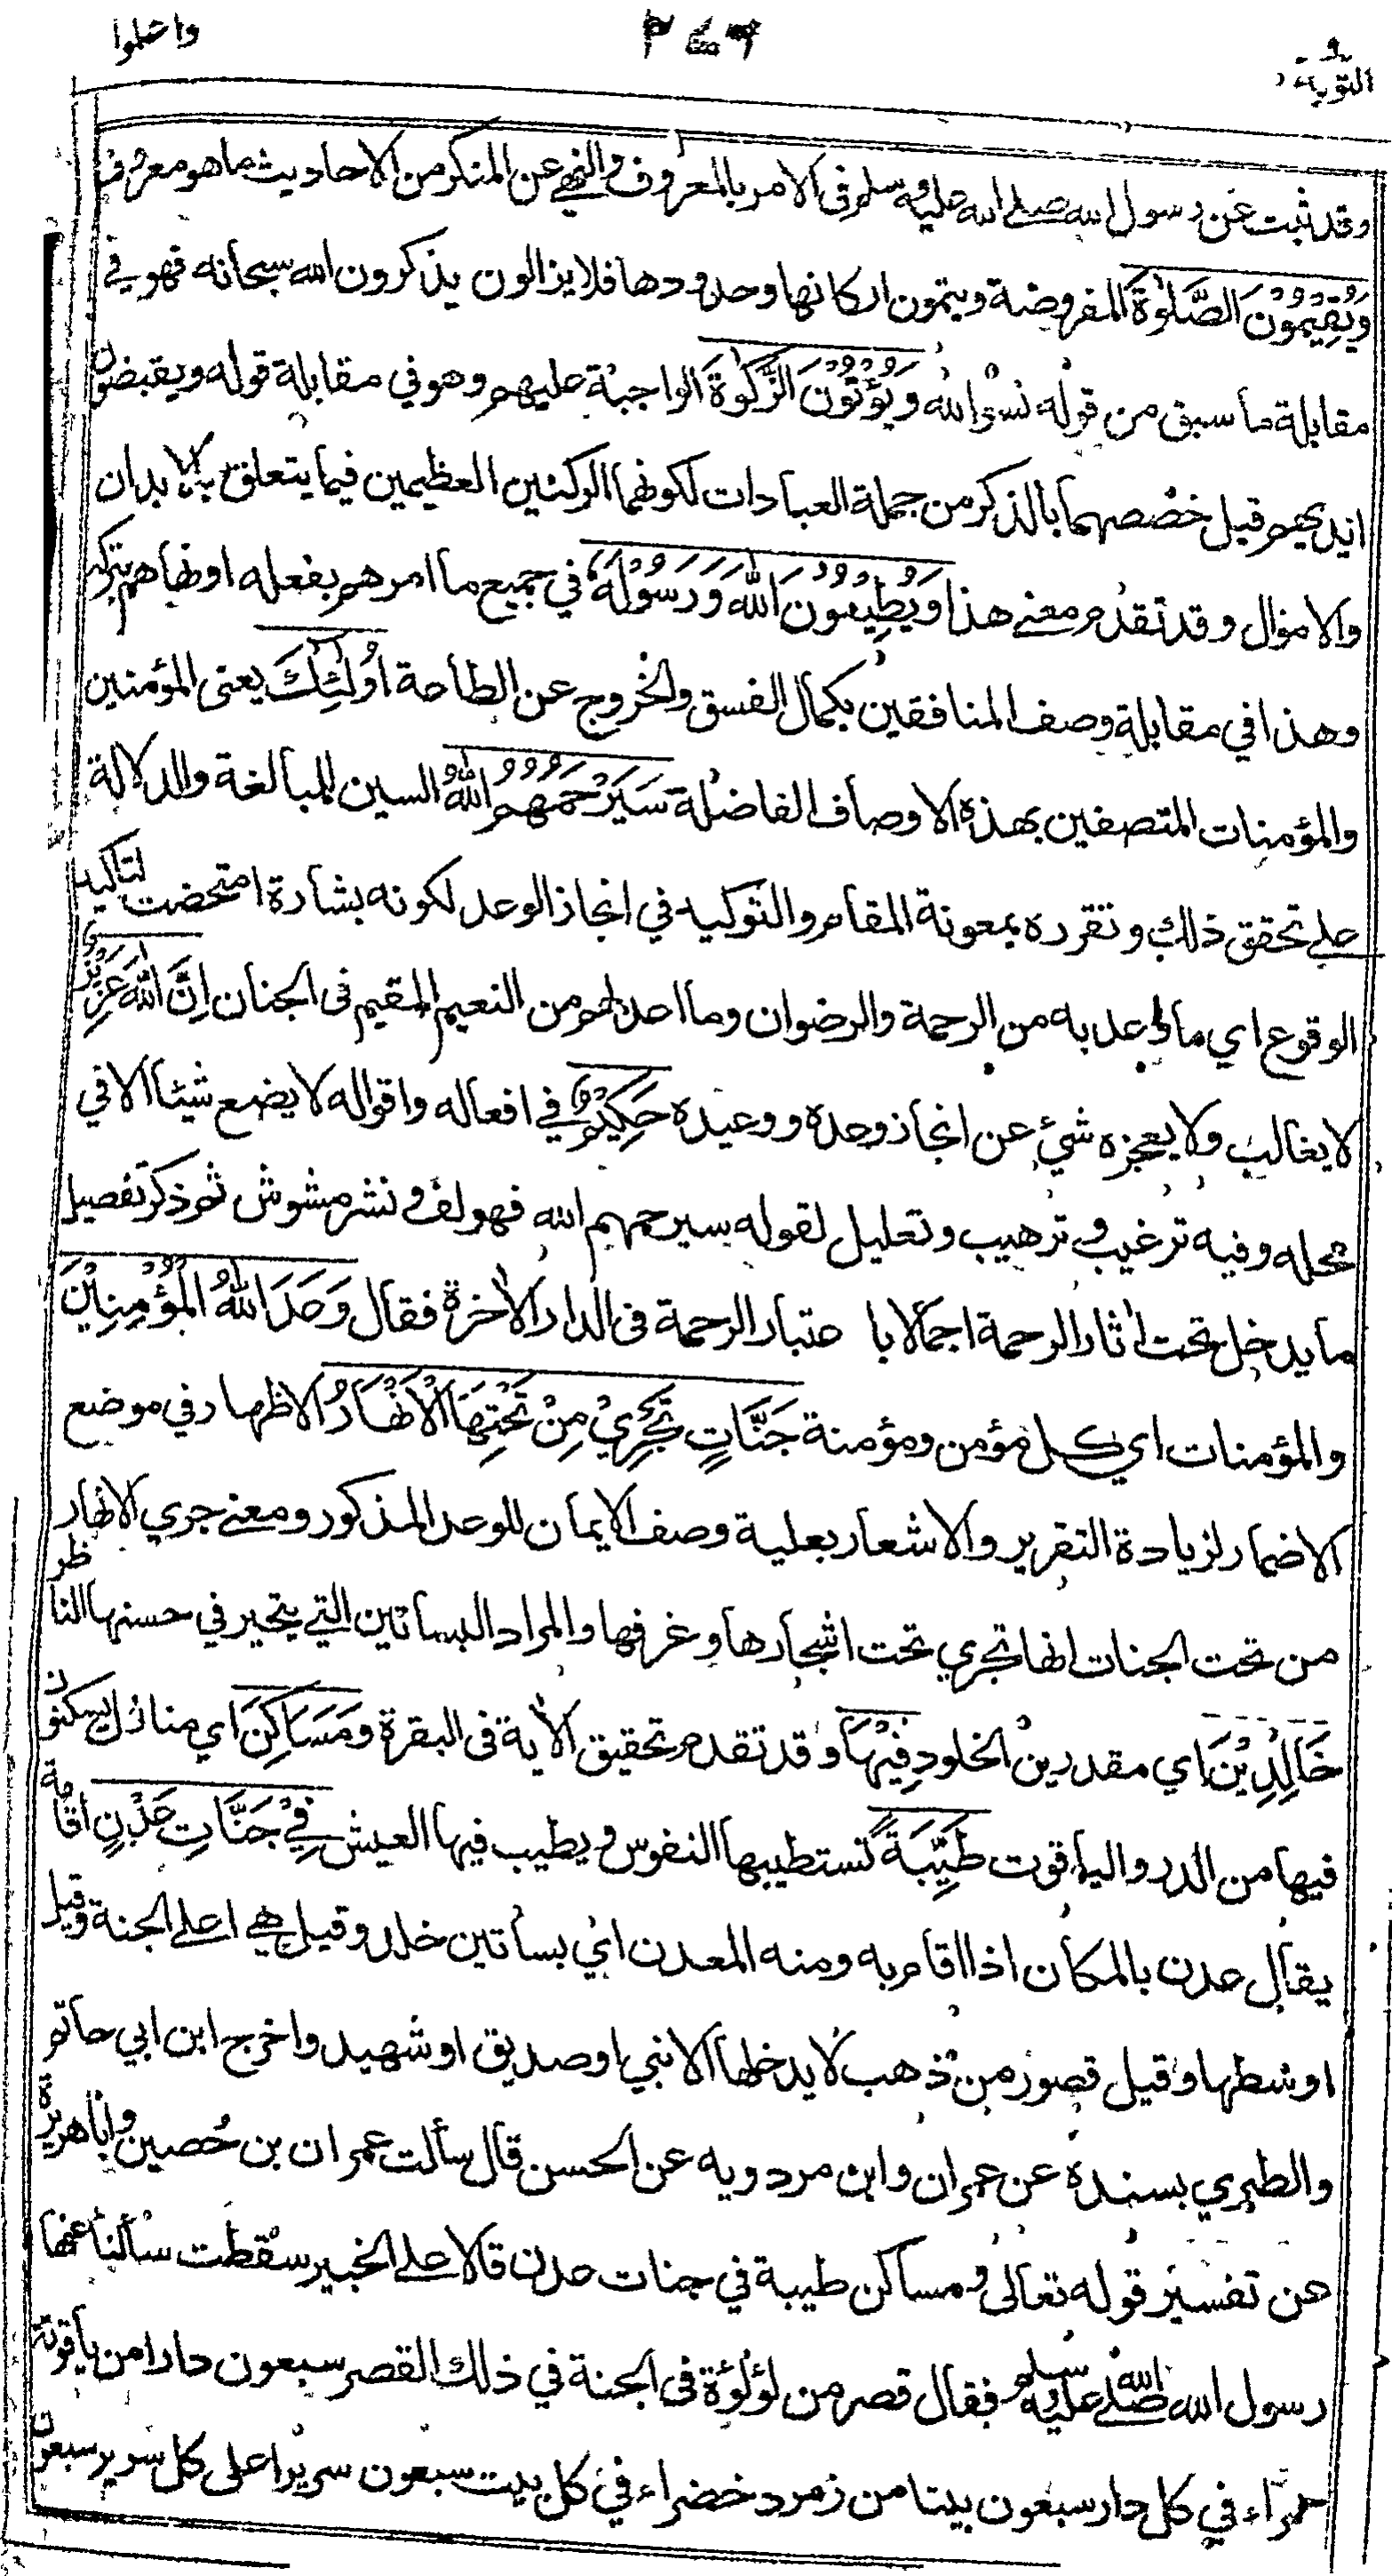 واعلموا
٢٧٦
التوبة ٩
وقد ثبت عن رسول الله صلى الله عليه وسلم فى الامر بالمعروف والنهي عن المنكر من الاحاديث ما هو معروف
وَيُقِيمُونَ الصَّلٰوةَ المفروضة ويتمون اركانها وحدودها فلا يزالون يذكرون الله سبحانه فهو في
مقابلة ما سبق من قوله نسوا الله وَيُؤْتُونَ الزَّكٰوةَ الواجبة عليهم وهو في مقابلة قوله ويقبضون
ايديهم قيل خصصهما بالذكر من جملة العبادات لكونهما الركنين العظيمين فيما يتعلق بالابدان
والاموال وقد تقدم معنى هذا وَيُطِيعُونَ اللّٰهَ وَرَسُولَهُ في جميع ما امرهم بفعله او نهاهم بتركه
وهذا في مقابلة وصف المنافقين بكمال الفسق والخروج عن الطاعة اُولٰئِكَ يعنى المؤمنين
والمؤمنات المتصفين بهذه الاوصاف الفاضلة سَيَرْحَمُهُمُ اللّٰهُ السين للمبالغة والدلالة
على تحقق ذلك وتقرره بمعونة المقام والتوكيد في انجاز الوعد لكونه بشارة امتحضت لتاكيد
الوقوع اي ما وعد به من الرحمة والرضوان وما اعد لهم من النعيم المقيم فى الجنان اِنَّ اللّٰهَ عَزِيْزٌ
لا يغالب ولا يعجزه شيء عن انجاز وعده ووعيده حَكِيْمٌ في افعاله واقواله لا يضع شيئا الا في
محله وفيه ترغيب وترهيب وتعليل لقوله سيرحمهم الله فهو لف ونشر مشوش ثم ذكر تفصيل
ما يدخل تحت اثار الرحمة اجمالا باعتبار الرحمة فى الدار الاخرة فقال وَعَدَ اللّٰهُ الْمُؤْمِنِيْنَ
والمؤمنات اي كل مؤمن ومؤمنة جَنَّاتٍ تَجْرِيْ مِنْ تَحْتِهَا الْاَنْهَارُ الاظهار في موضع
الاضمار لزيادة التقرير والاشعار بعلية وصف الايمان للوعد المذكور ومعنى جري الانهار
من تحت الجنات انها تجري تحت اشجارها وغرفها والمراد البساتين التي يتحير في حسنها الناظر
خَالِدِيْنَ اي مقدرين الخلود فِيْهَا وقد تقدم تحقيق الاية فى البقرة وَمَسَاكِنَ اي منازل يسكنون
فيها من الدر والياقوت طَيِّبَةً تستطيبها النفوس ويطيب فيها العيش فِيْ جَنَّاتِ عَدْنٍ اقامة
يقال عدن بالمكان اذا اقام به ومنه المعدن اي بساتين خلد وقيل هي اعلى الجنة وقيل
اوسطها وقيل قصور من ذهب لا يدخلها الا نبي او صديق او شهيد واخرج ابن ابي حاتم
والطبري بسنده عن عمران وابن مردويه عن الحسن قال سألت عمران بن حُصين وابا هريرة
عن تفسير قوله تعالى ومساكن طيبة في جنات عدن قالا على الخبير سقطت سألنا عنها
رسول الله صلى الله عليه وسلم فقال قصر من لؤلؤة فى الجنة في ذلك القصر سبعون دارا من ياقوتة
حمراء في كل دار سبعون بيتا من زمرد خضراء في كل بيت سبعون سريرا على كل سرير سبعون